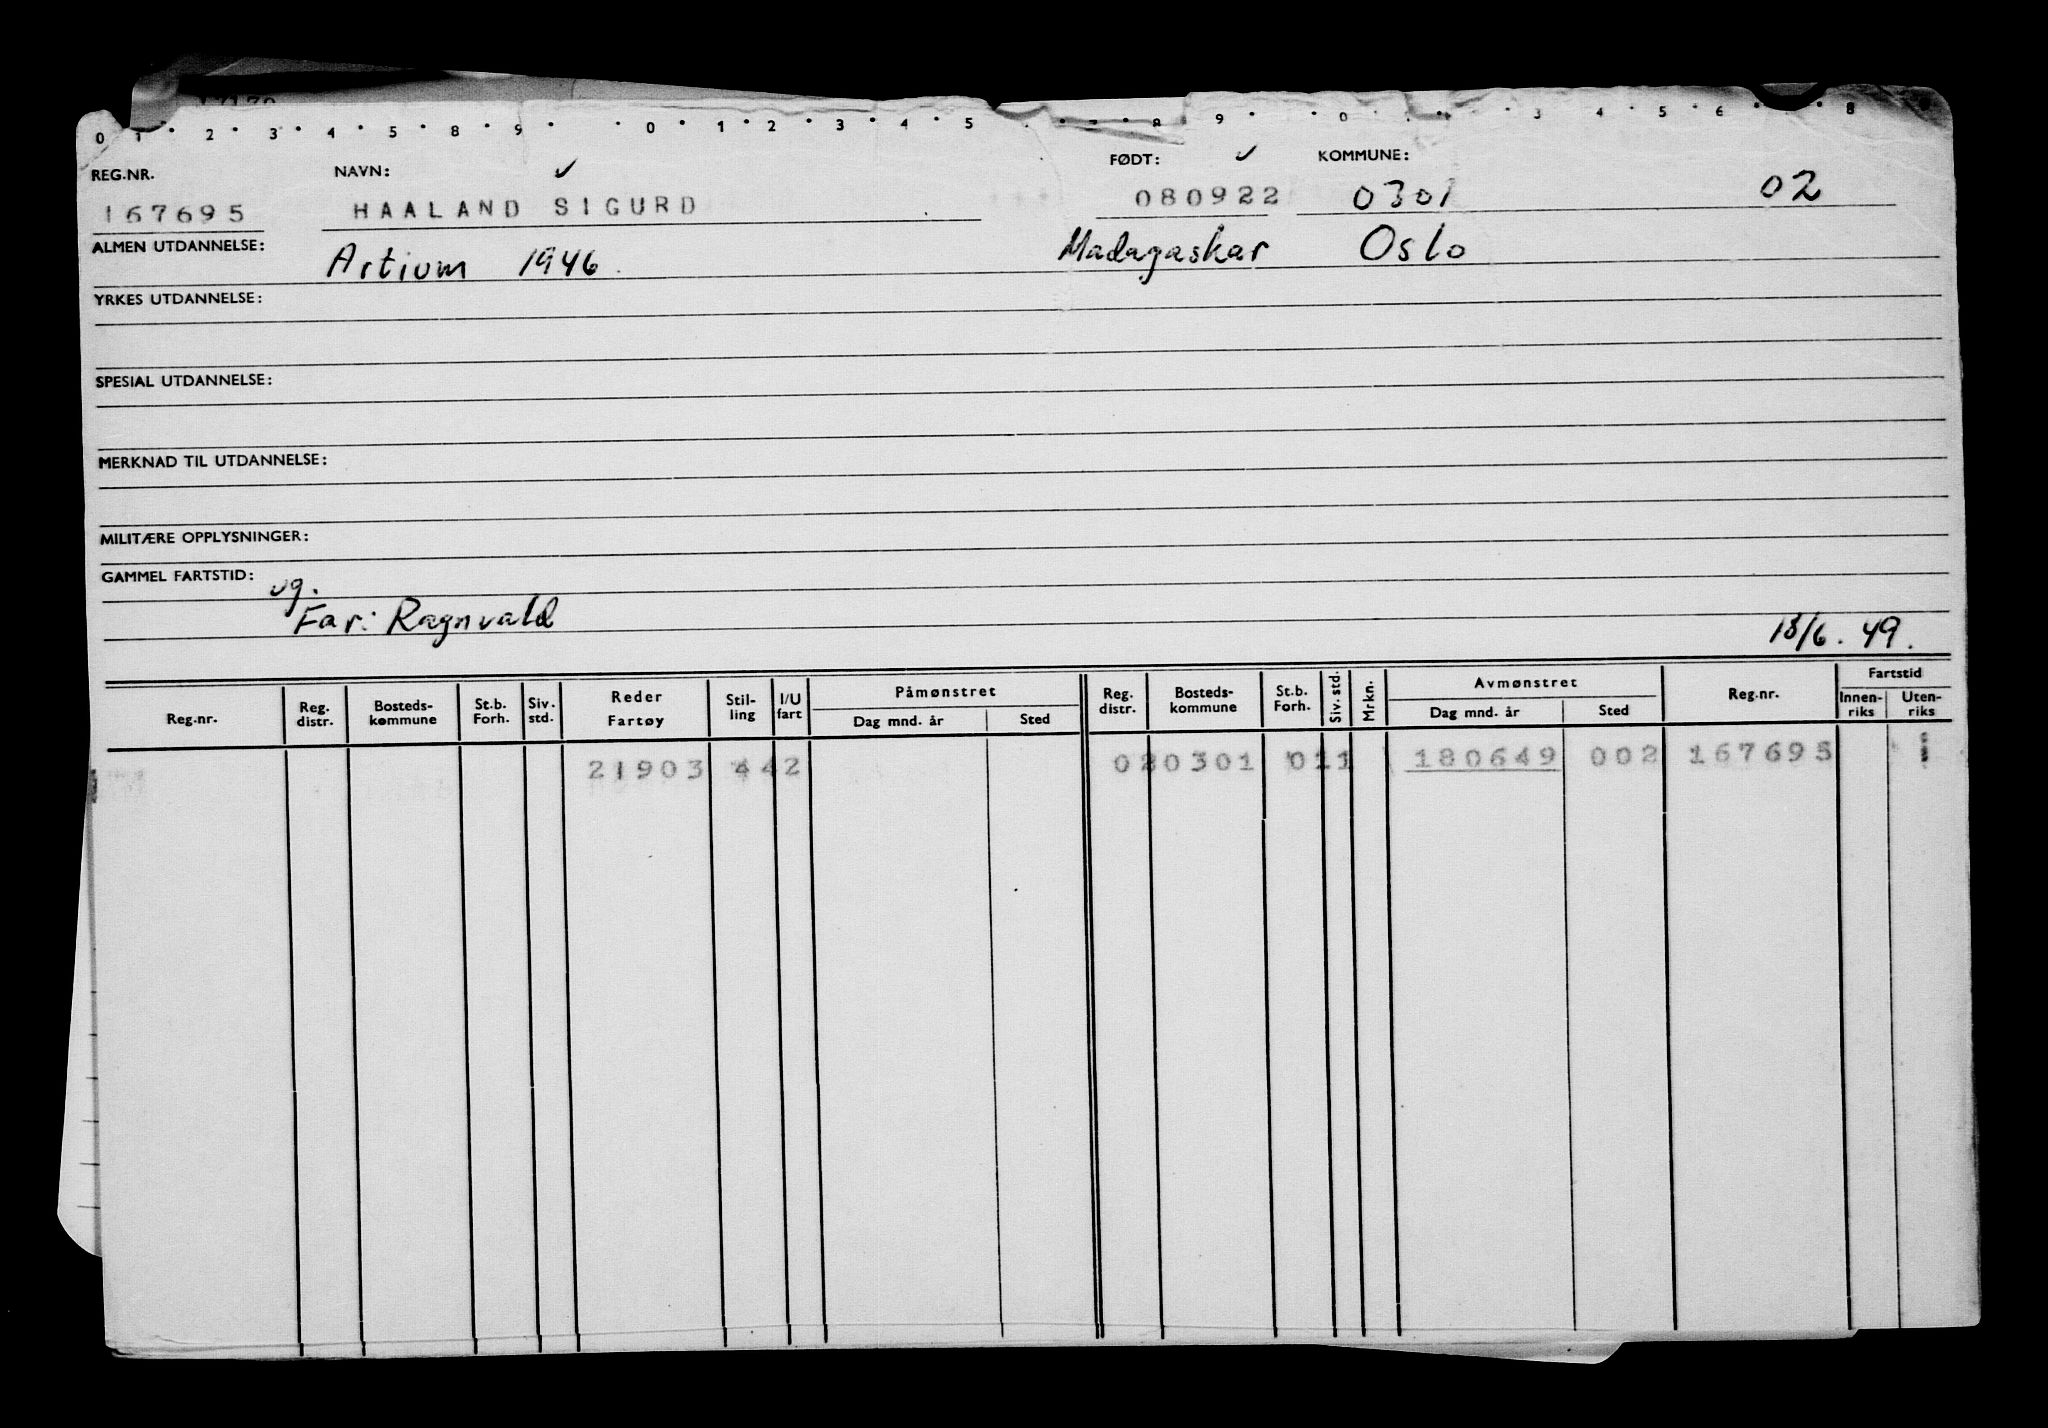 0 1 · 2 · 3 · 4 · 5 · 8 · 9 · · 0 · 1 · 2 · 3 · 4 · 5 · 8 · 9 · · 0 · 3 · 4 · 5 · 6 · 8
REG.NR. NAVN: ✓ FØDT: ✓ KOMMUNE:
167695 HAALAND SIGURD 080922 0301 02
ALMEN UTDANNELSE: Artium 1946 Madagaskar Oslo
YRKES UTDANNELSE:
SPESIAL UTDANNELSE:
MERKNAD TIL UTDANNELSE:
MILITÆRE OPPLYSNINGER:
GAMMEL FARTSTID:
ug.
Far: Ragnvald 18/6. 49.
Reg.nr. Reg. distr. Bosteds- kommune St.b. Forh. Siv. std. Reder Fartøy Stil- ling I/U fart Påmønstret Dag mnd. år Sted Reg. distr. Bosteds- kommune St.b. Forh. Siv. std. Mrkn. Avmønstret Dag mnd. år Sted Reg.nr. Fartstid Innen- riks Uten- riks
21903 442 020301 011 180649 002 167695